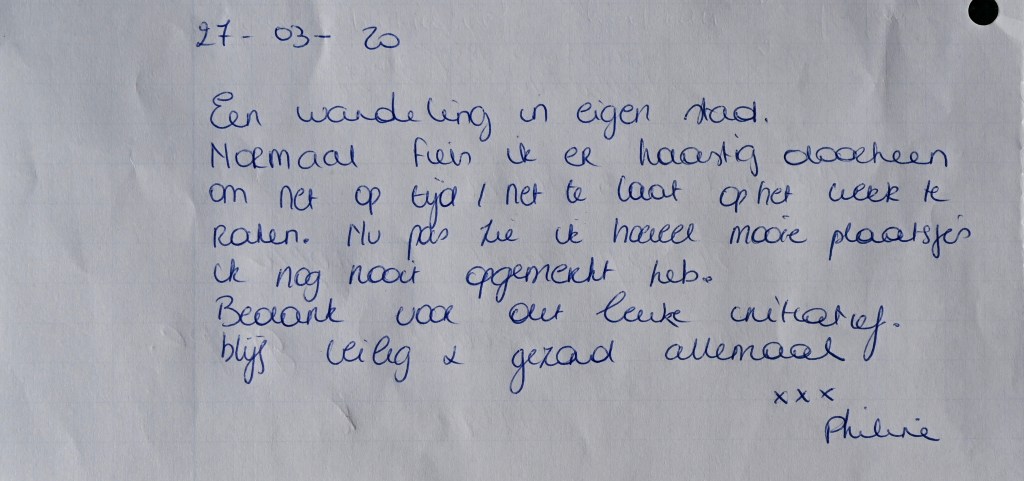 27-03-20
Een wandeling in eigen stad.
Normaal fiets ik er haastig doorheen
om net op tijd / net te laat op het werk te
raken. Nu pas zie ik hoeveel mooie plaatsjes
ik nog nooit opgemerkt heb.
Bedankt voor dit leuke initiatief.
blijf veilig & gezond allemaal
xxx
Philine